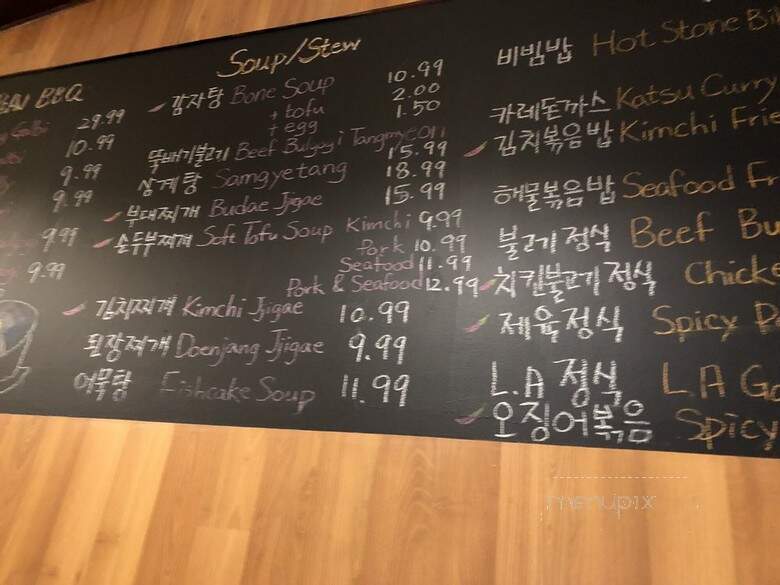 BBQ
29.99
10.99
9.99
9.99
9.99
9.99
Soup/Stew
감자탕 Bone Soup 10.99
+ tofu 2.00
+ egg 1.50
뚝배기불고기 Beef Bulgogi 15.99
삼계탕 Samgyetang 18.99
부대찌개 Budae Jigae 15.99
손두부찌개 Soft Tofu Soup Kimchi 9.99
Pork 10.99
Seafood 11.99
Pork & Seafood 12.99
김치찌개 Kimchi Jigae 10.99
된장찌개 Doenjang Jigae 9.99
어묵탕 Fishcake Soup 11.99
비빔밥 Hot Stone
카레돈까스 Katsu Curry
김치볶음밥 Kimchi
해물볶음밥 Seafood
불고기정식 Beef
치킨불고기정식
제육정식 Spicy
L.A 정식 L.A
오징어볶음 Spicy
menupix